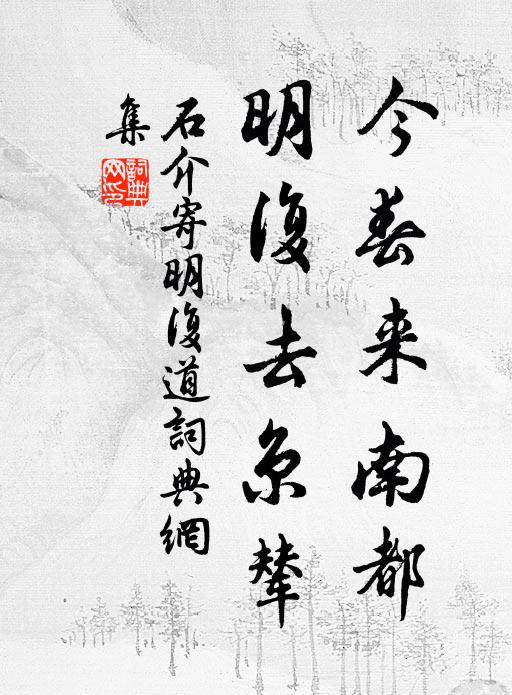 今春来南都
明復去京輦
石介寄明復道詞典網
集
詞典網印